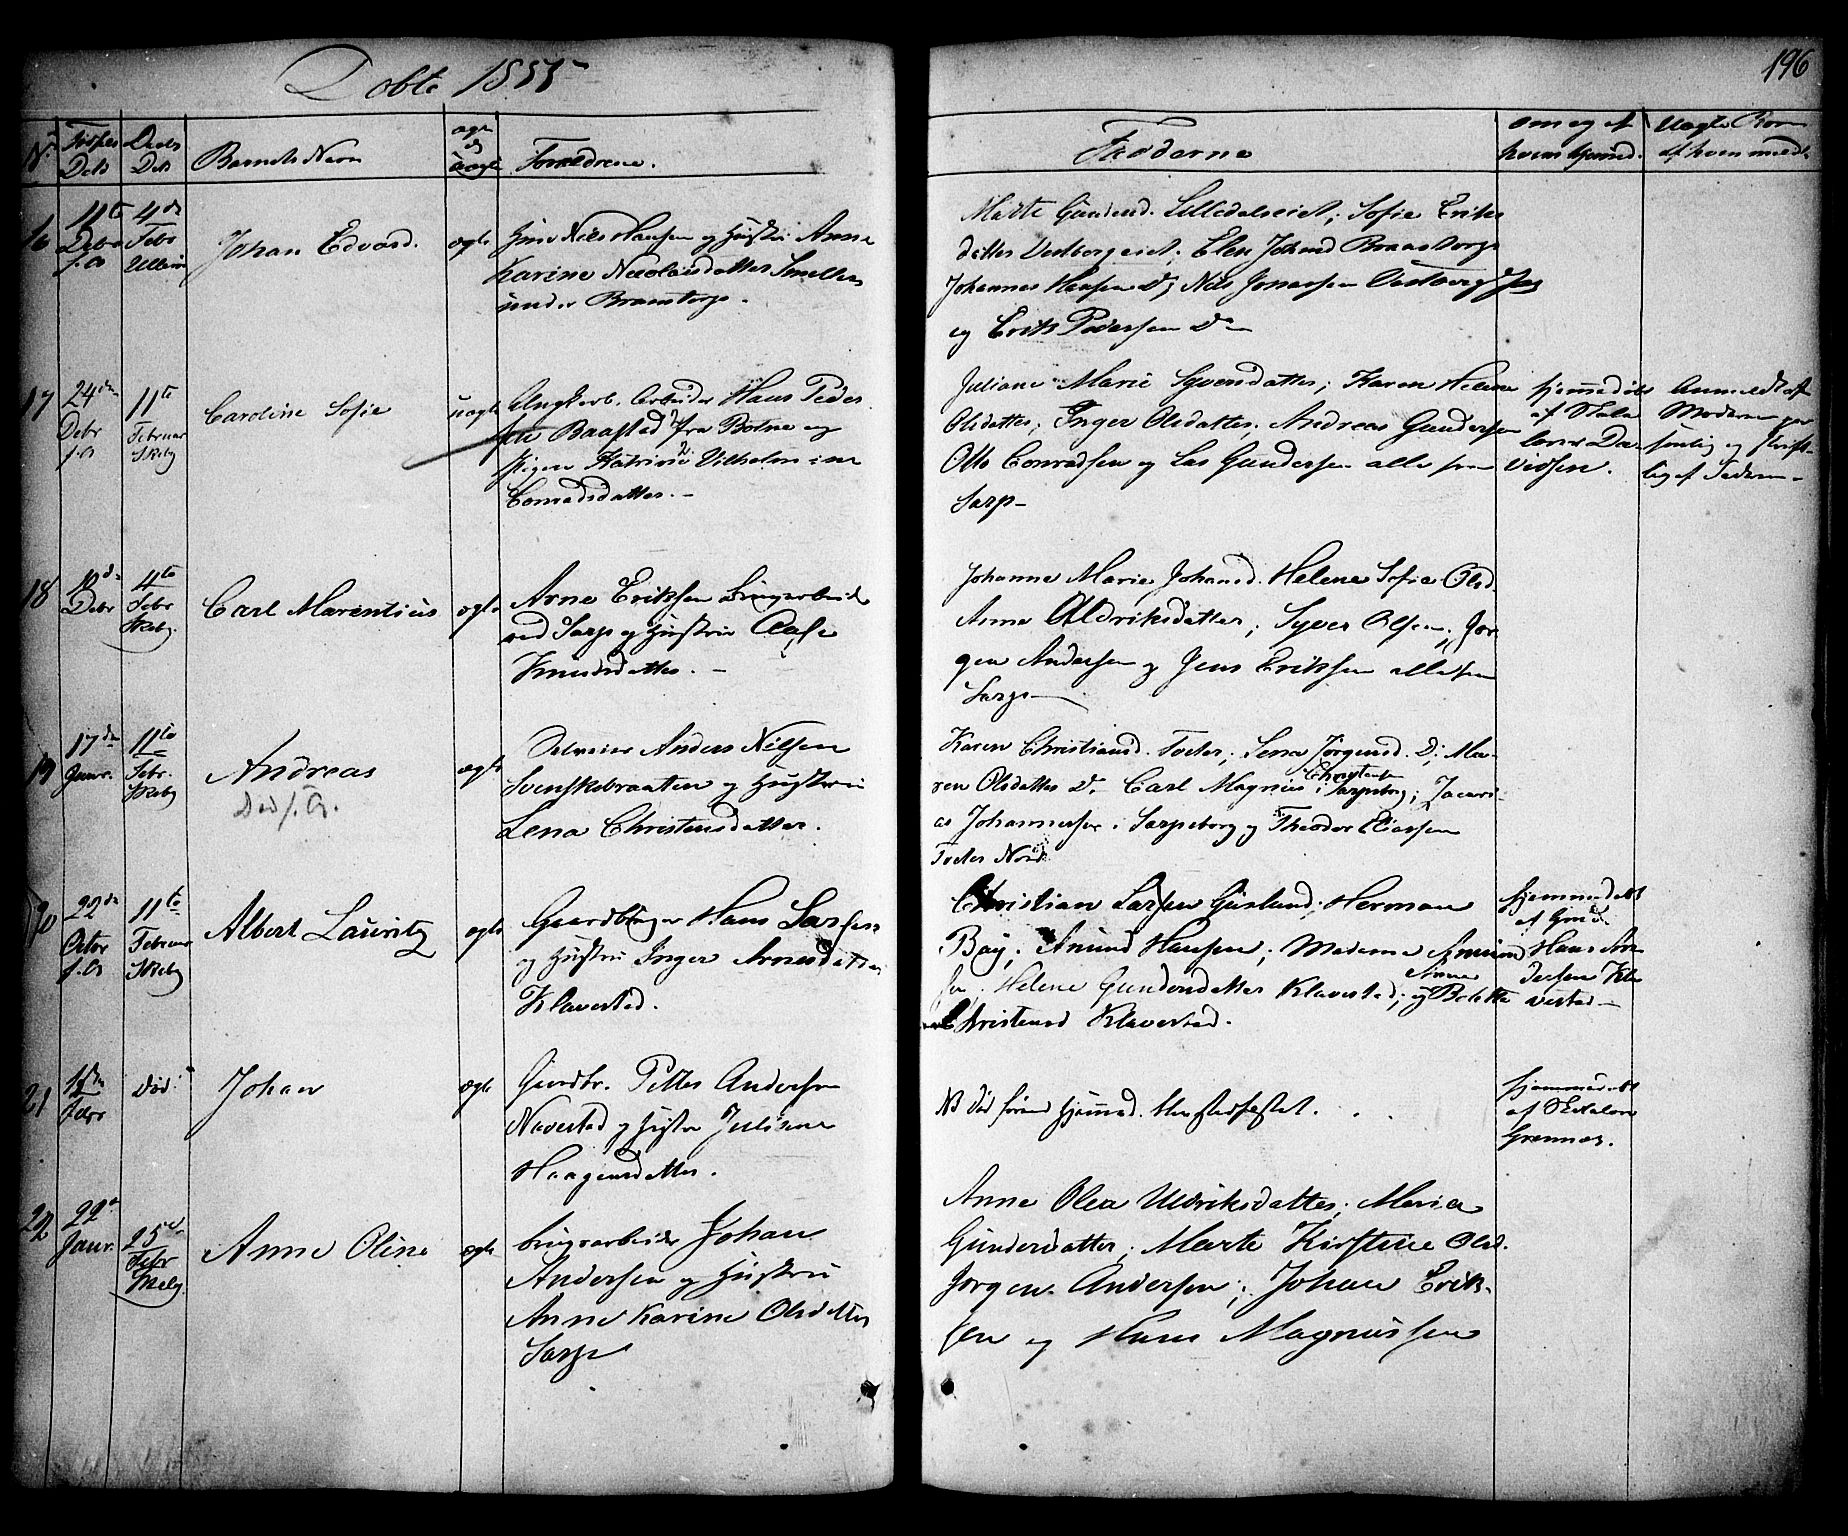 Døbte 1855
196
No Fødsels Dat Daabs Dat Barnets Navn ægte og uægte Forældrene.
Fadderne om og af hvem hjemmed. Uægte Børn af hvem meldt
16 11te Debr f. A. 4de Febr Ullerø
Johan Edvard.
ægte
Huus Nils Hansen og Hustru Anne
Karine Nicolaisdatter
under Braastorp.
Marte Gundersd. Lilledalseiet; Sofie Eriks
datter Vestbergeiet; Elen Johansd Braastorp
Johannes Hansen Do; Nils Jonassen Vestberg
og Erik Pedersen Do
17 24de Debr f. A. 11te Februar Skeby
Caroline Sofie
uægte
Ungkarl. Arbeider Hans Peder
sen Baastad fra Botne og
Pigen Katrine Vilhelmine
Conradsdatter.
Juliane Marie Syversdatter; Karen Helene
Olsdatter; Inger Olsdatter; Andreas Gundersen
Otto Conradsen og Lars Gundersen alle fra
Sarp
hjemmedøbt
af Skole
lærer Da
vidsen.
Anmeldt af
Moderen per
sonlig og skrift
lig af Faderen
18 10de Debr 4te Febr Skeby
Carl Marentius
ægte
Arne Eriksen Brugsarbeider
ved Sarp og Hustru
Knudsdatter.
Johanne Marie Johansd. Helene Sofie Olsd.
Anne Uldriksdatter; Syver Olsen; Jør
gen Andersen og Jens Eriksen alle fra
Sarp
19 17de Januar. 11te Febr. Skeby
Andreas
Død f. A.
ægte
Selveier Anders Nilsen
Svenskebraaten og Hustru
Lena Christensdatter.
Karen Christiansd. Tveter; Lena Jørgensd. Do; Ma
ren Olsdatter Do. Carl Magnus Christensen i Sarpsborg; Zacari
as Johannesen i Sarpsborg og Theodor Eliassen
Tveter Nord
20 22de Octbr f. A. 11te Februar Skeby
Albert Lauritz
ægte
Gaardbruger Hans Larsen
og Hustru Inger Arnesdatter
Klavestad.
Christian Larsen Guslund; Herman
Bøy; Anund Hansen; Madame Amund
sen; Helene Gundersdatter Klavestad; og Anne Bolette
Christensd Klavestad.
hjemmedøbt
af Gmd.
Hans An
dersen Kla
vestad
21 12de Febr Død
Johan
ægte
Gaardbr. Petter Andersen
Navestad og Hustru Juliane
Haagensdatter.
NB død førend hjemmed. blev stadfæstet.
hjemmedøbt
af Skolelær
Grønnas.
22 22de Januar. 25de Febr Skeby
Anne Oline
ægte
brugsarbeider Johan
Andersen og Hustru
Anne Karine Olsdatter
Sarp
Anne Olea Uldriksdatter; Maria
Gundersdatter; Marte Kirstine Olsd.
Jørgen Andersen; Johan Erik-
sen og Hans Magnussen